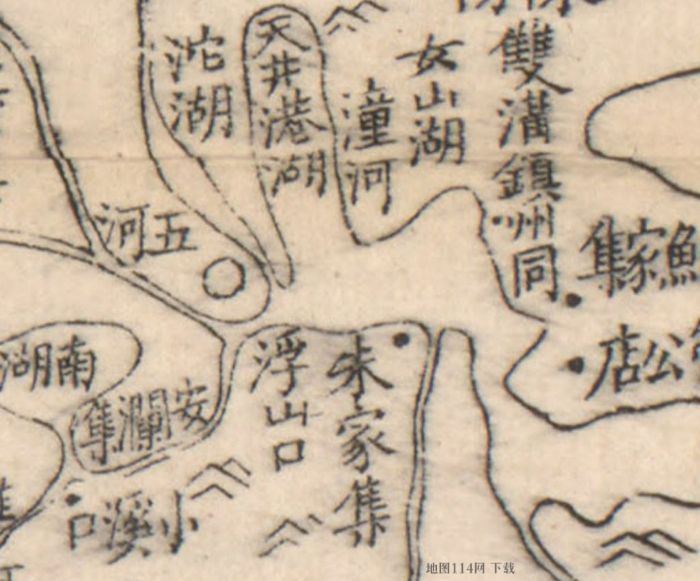 沱湖
天井港湖
潼河
女山湖
雙溝鎮州同
五河
家集
公店
南湖
安瀾集
浮山口
朱家集
小溪口
地图114网 下载